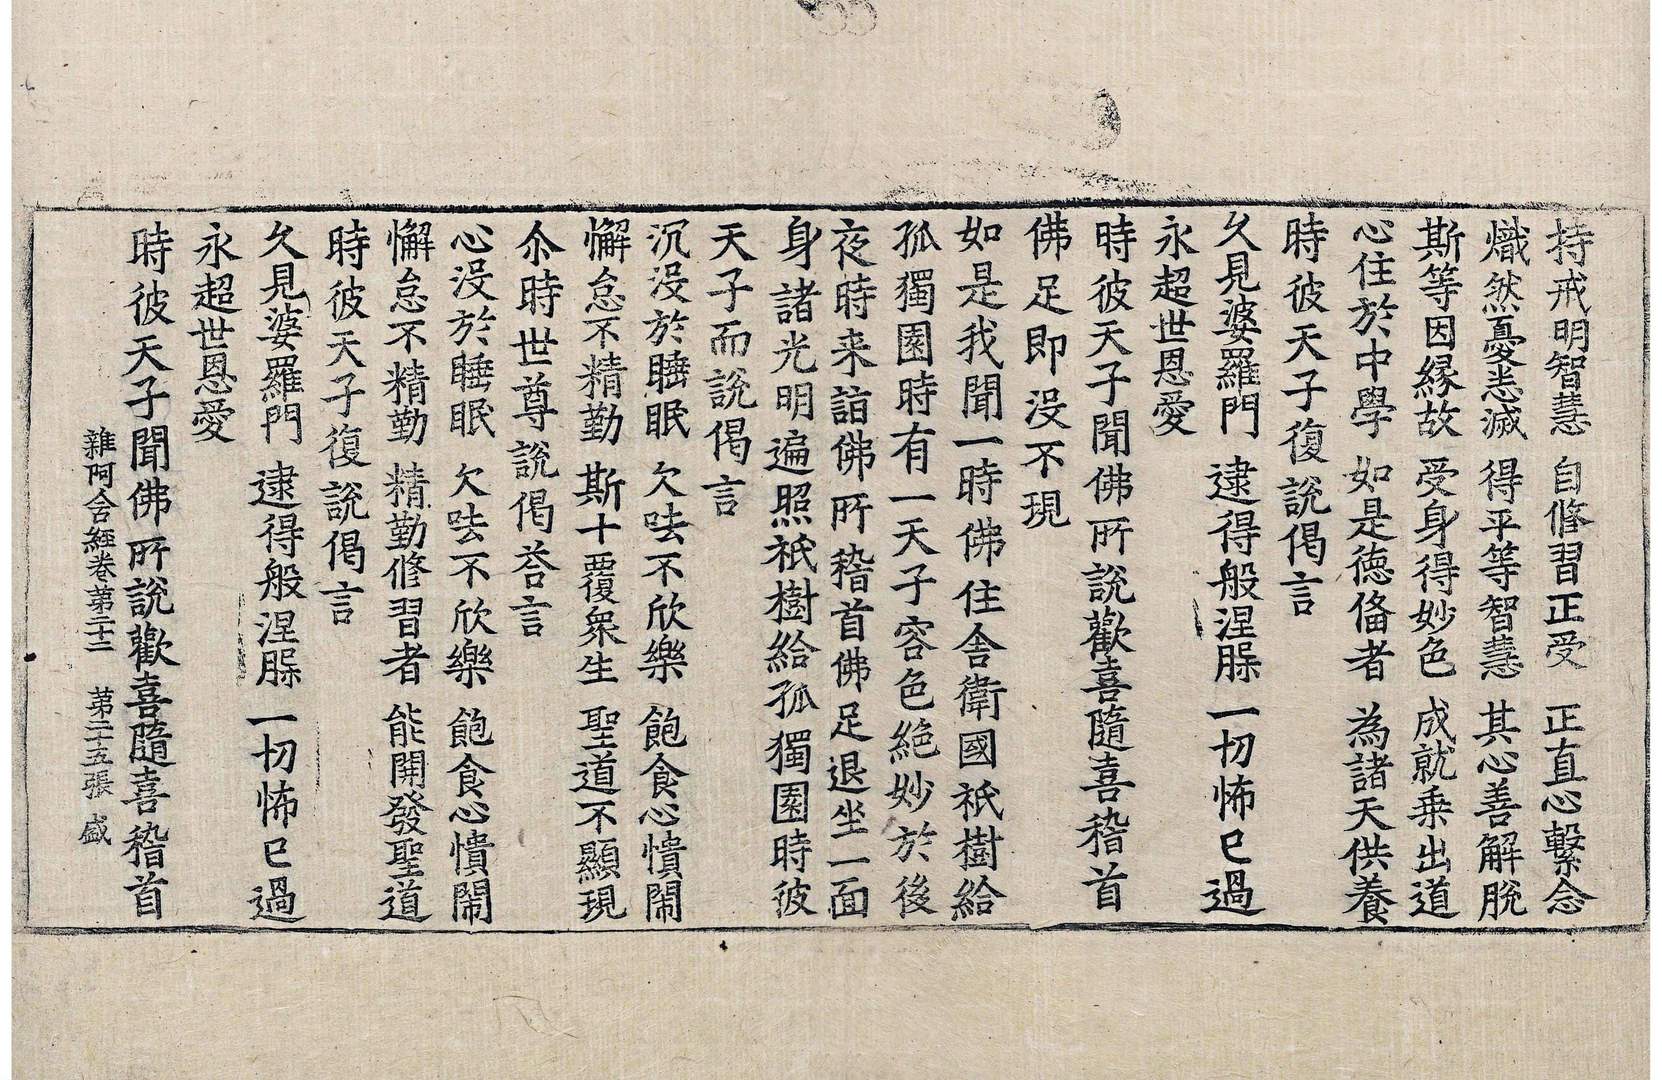 持戒明智慧 自修習正受 正直心繫念
熾然憂悉滅 得平等智慧 其心善解脫
斯等因緣故 受身得妙色 成就乗出道
心住於中學 如是徳俻者 為諸天供養
時彼天子復說偈言
久見婆羅門 逮得般涅槃 一切怖已過
永超世恩愛
時彼天子聞佛所說歡喜隨喜稽首
佛足即没不現
如是我聞一時佛住舍衛國祇樹給
孤獨園時有一天子容色絶妙於後
夜時来詣佛所稽首佛足退坐一面
身諸光明遍照祇樹給孤獨園時彼
天子而說偈言
沉没於睡眠 欠呿不欣樂 飽食心憒閙
懈怠不精勤 斯十覆衆生 聖道不顯現
尒時世尊說偈荅言
心没於睡眠 欠呿不欣樂 飽食心憒閙
懈怠不精勤 精勤修習者 能開發聖道
時彼天子復說偈言
久見婆羅門 逮得般涅槃 一切怖已過
永超世恩愛
雜阿含經卷第二十二 第二十五張 盛
時彼天子聞佛所說歡喜隨喜稽首